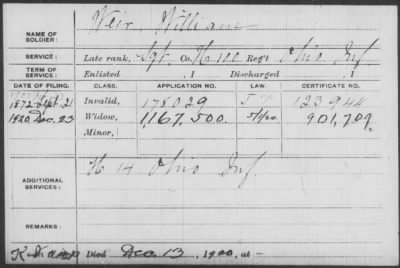 Weir William
NAME OF SOLDIER:
SERVICE: Late rank, Sgt. Co. H 100 Reg't Ohio Inf
TERM OF SERVICE: Enlisted , 1 Discharged , 1
DATE OF FILING. CLASS. APPLICATION NO. LAW. CERTIFICATE NO.
1872 Sept. 21 Invalid, 178029 123944
1920 Dec. 23 Widow, 1,167,500. 5/1/20. 901,709
Minor,
H 14 Ohio Inf
ADDITIONAL SERVICES:
REMARKS:
Died Dec. 13, 1920, at —